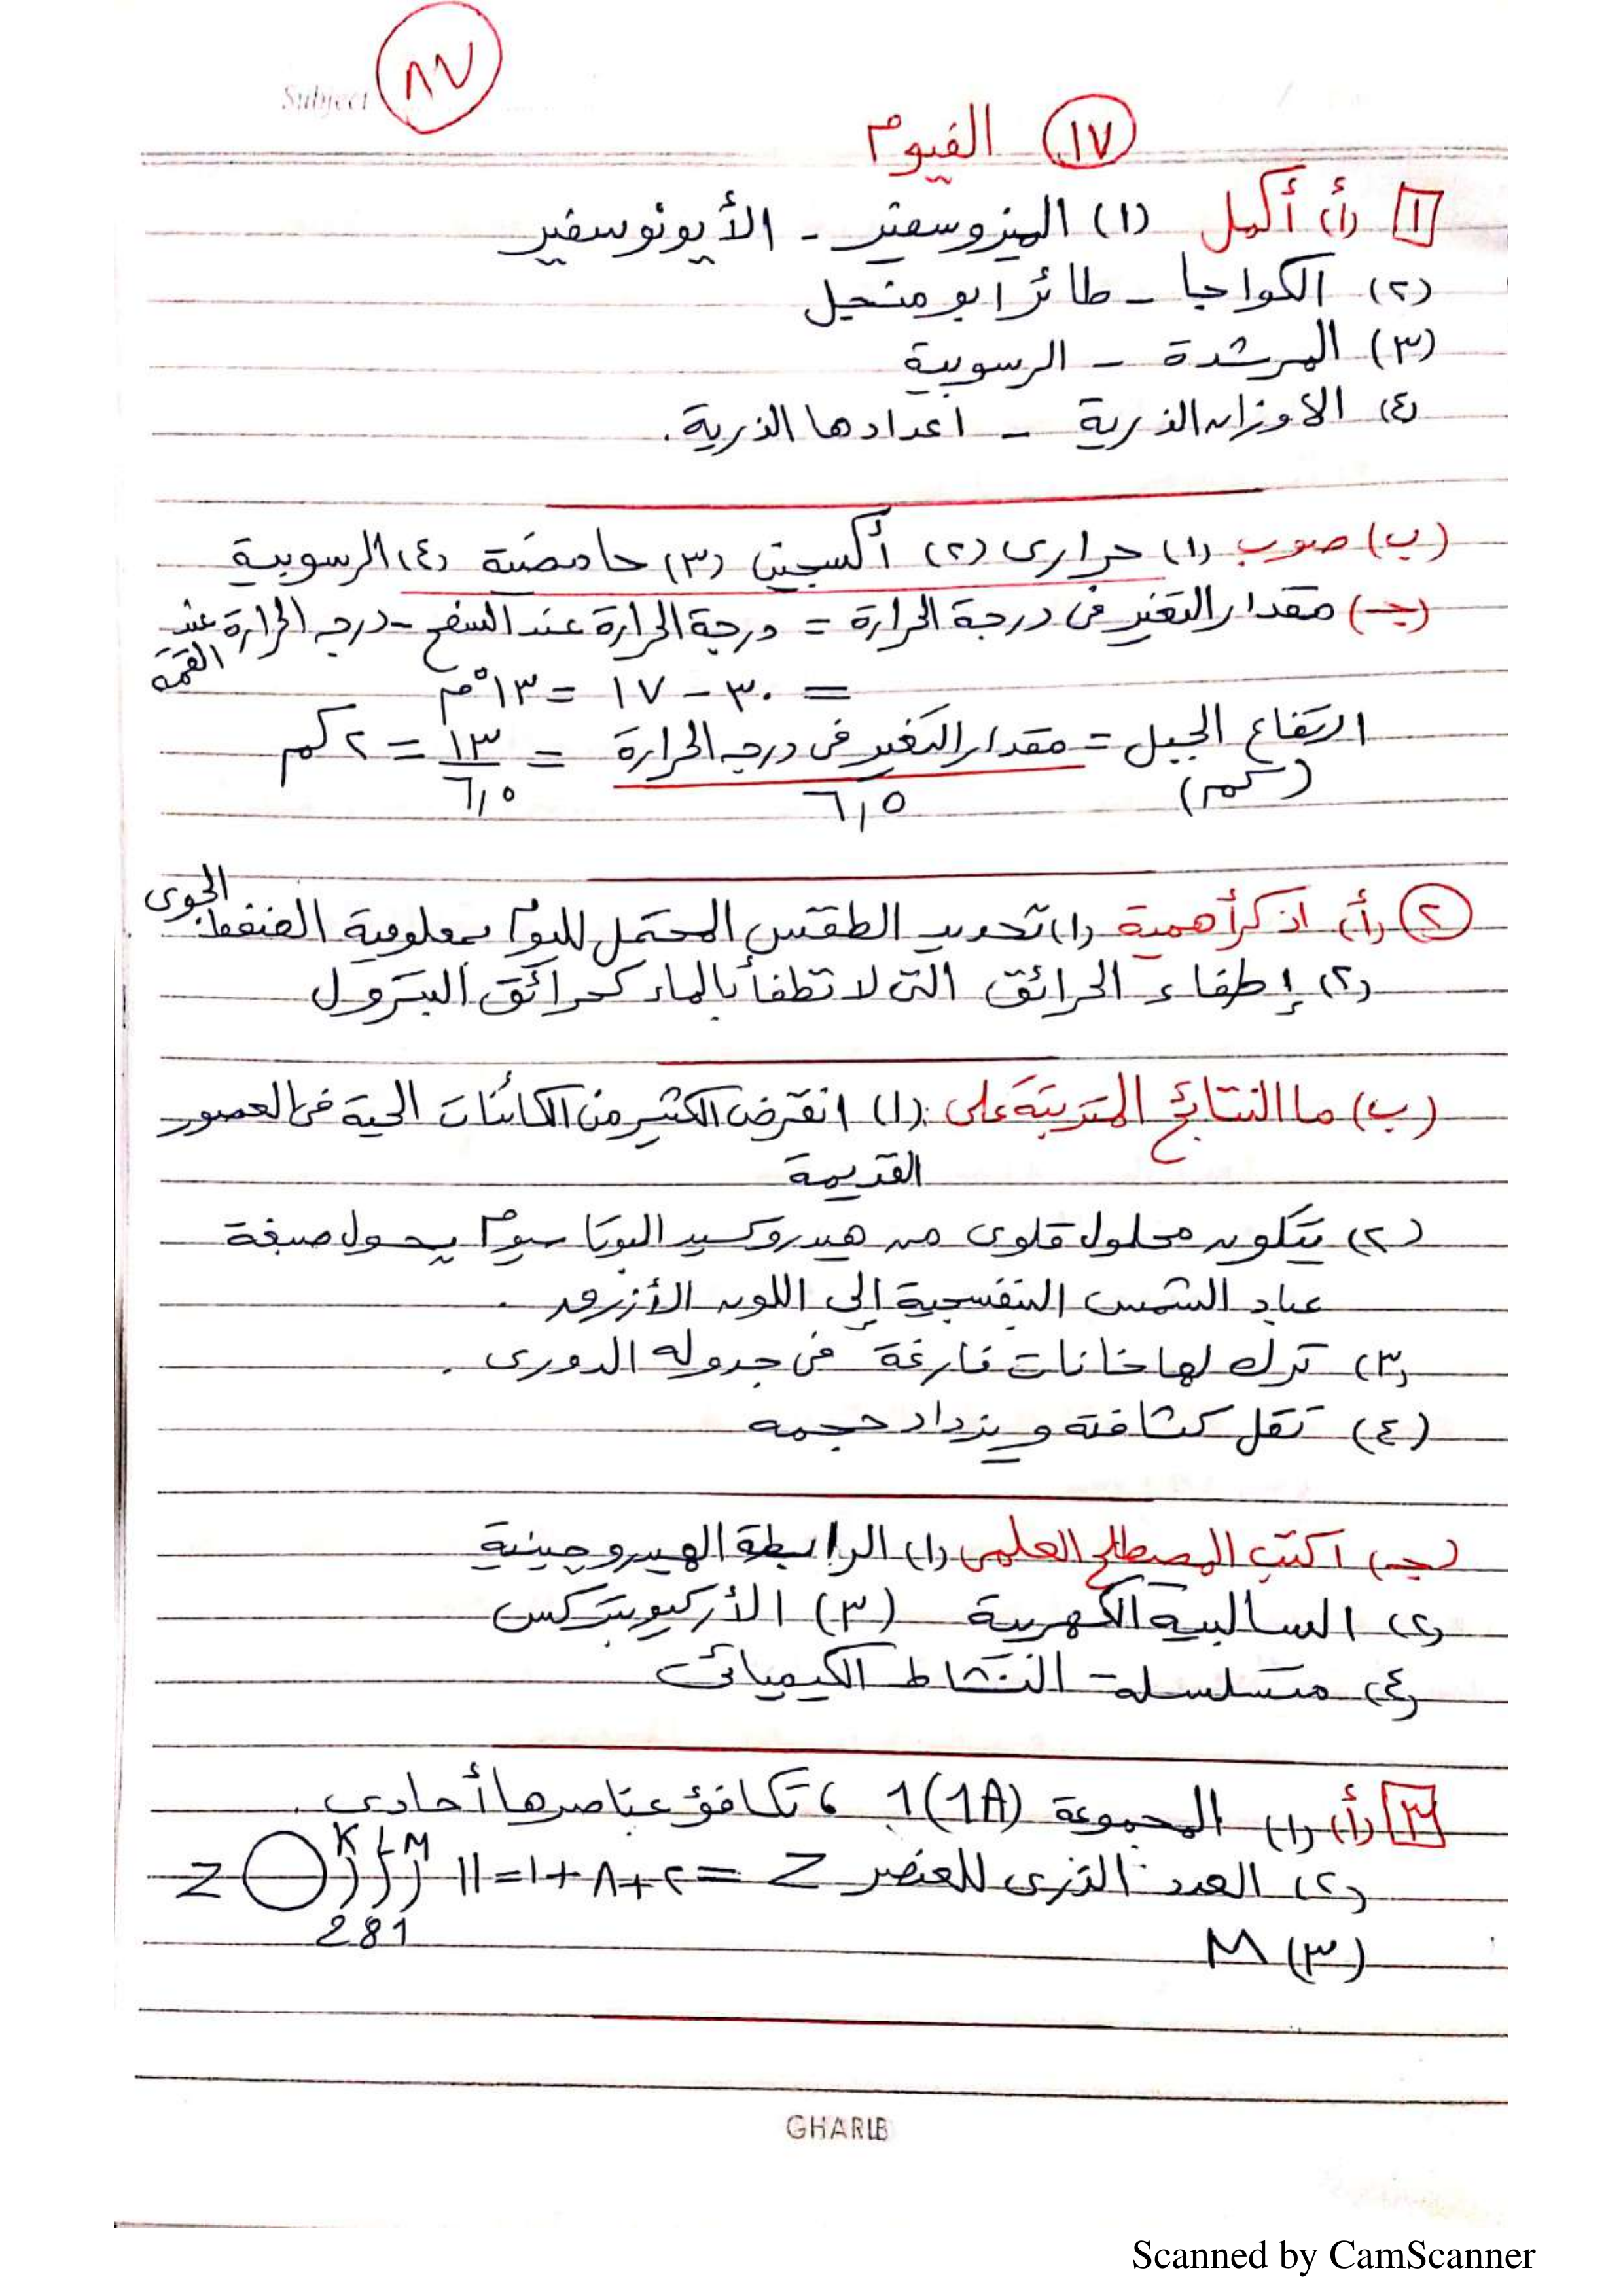 Subject
٨٧
١٧ الفيوم
١ (أ) أكمل (١) الميزوسفير - الأيونوسفير
(٢) الكواجا - طائر ابو منجل
(٣) المرشدة - الرسوبية
(٤) الاوزان الذرية - اعدادها الذرية.
(ب) صوب (١) حرارى (٢) أكسجين (٣) حامضية (٤) الرسوبية
(جـ) مقدار التغير فى درجة الحرارة = درجة الحرارة عند السفح - درجه الحرارة عند القمة
= ٣٠ - ١٧ = ١٣°م
ارتفاع الجبل = مقدار التغير فى درجه الحرارة = ١٣ = ٢ كم
(كم) ٦,٥ ٦,٥
٢ (أ) اذكر أهمية (١) تحديد الطقس المحتمل لليوم بمعلومية الضغط الجوى
(٢) إطفاء الحرائق التى لا تطفأ بالماء كحرائق البترول
(ب) ما النتائج المترتبة على: (١) انقرض الكثير من الكائنات الحية فى العصور
القديمة
(٢) يتكون محلول قلوى من هيدروكسيد البوتاسيوم يحول صبغة
عباد الشمس البنفسجية إلى اللون الأزرق.
(٣) ترك لها خانات فارغة فى جدوله الدورى.
(٤) تقل كثافته ويزداد حجمه
(جـ) اكتب المصطلح العلمى (١) الرابطة الهيدروجينية
(٢) السالبية الكهربية (٣) الأركيوبتركس
(٤) متسلسلة النشاط الكيميائى
٣ (أ) (١) المجموعة 1(1A) ، تكافؤ عناصرها أحادى.
(٢) العدد الذرى للعنصر Z = ٢+٨+١=١١ Z K L M
2 8 1
(٣) M
GHARIB
Scanned by CamScanner